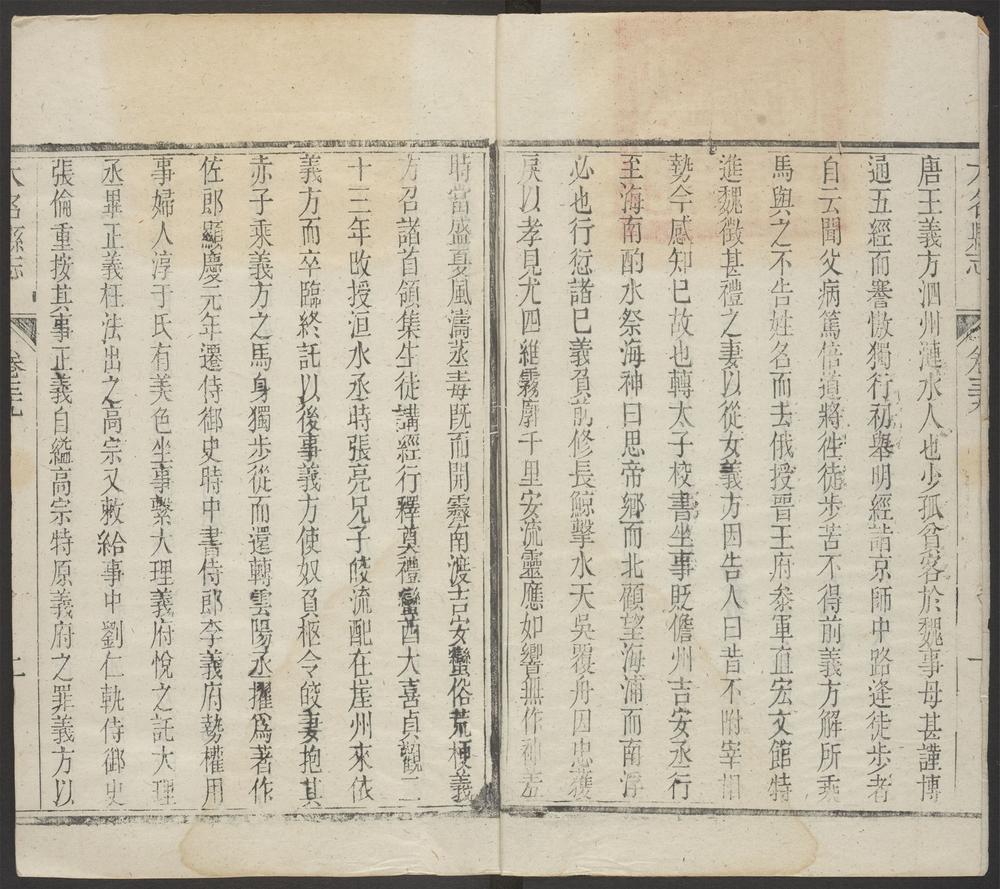 大名縣志
卷三十九
一
唐王義方泗州漣水人也少孤貧客於魏事母甚謹博
通五經而謇傲獨行初舉明經詣京師中路逢徒步者
自云聞父病篤倍道將往徒步苦不得前義方解所乘
馬與之不告姓名而去俄授晉王府參軍直宏文館特
進魏徵甚禮之妻以從女義方因告人曰昔不附宰相
勢今感知巳故也轉太子校書坐事貶儋州吉安丞行
至海南酌水祭海神曰思帝鄉而北顧望海浦而南浮
必也行愆諸巳義負前修長鯨擊水天吳覆舟因忠獲
戾以孝見尤四維霧廓千里安流靈應如響無作神羞
時當盛夏風濤蒸毒既而開霽南渡吉安蠻俗荒梗義
方召諸首領集生徒講經行釋奠禮蠻酋大喜貞觀二
十三年改授洹水丞時張亮兄子皎流配在崖州來依
義方而卒臨終託以後事義方使奴負柩令皎妻抱其
赤子乘義方之馬身獨步從而還轉雲陽丞擢爲著作
佐郎顯慶元年遷侍御史時中書侍郎李義府勢權用
事婦人淳于氏有美色坐事繫大理義府悅之託大理
丞畢正義枉法出之高宗又敕給事中劉仁軌侍御史
張倫重按其事正義自縊高宗特原義府之罪義方以
大名縣志
卷三十九
二